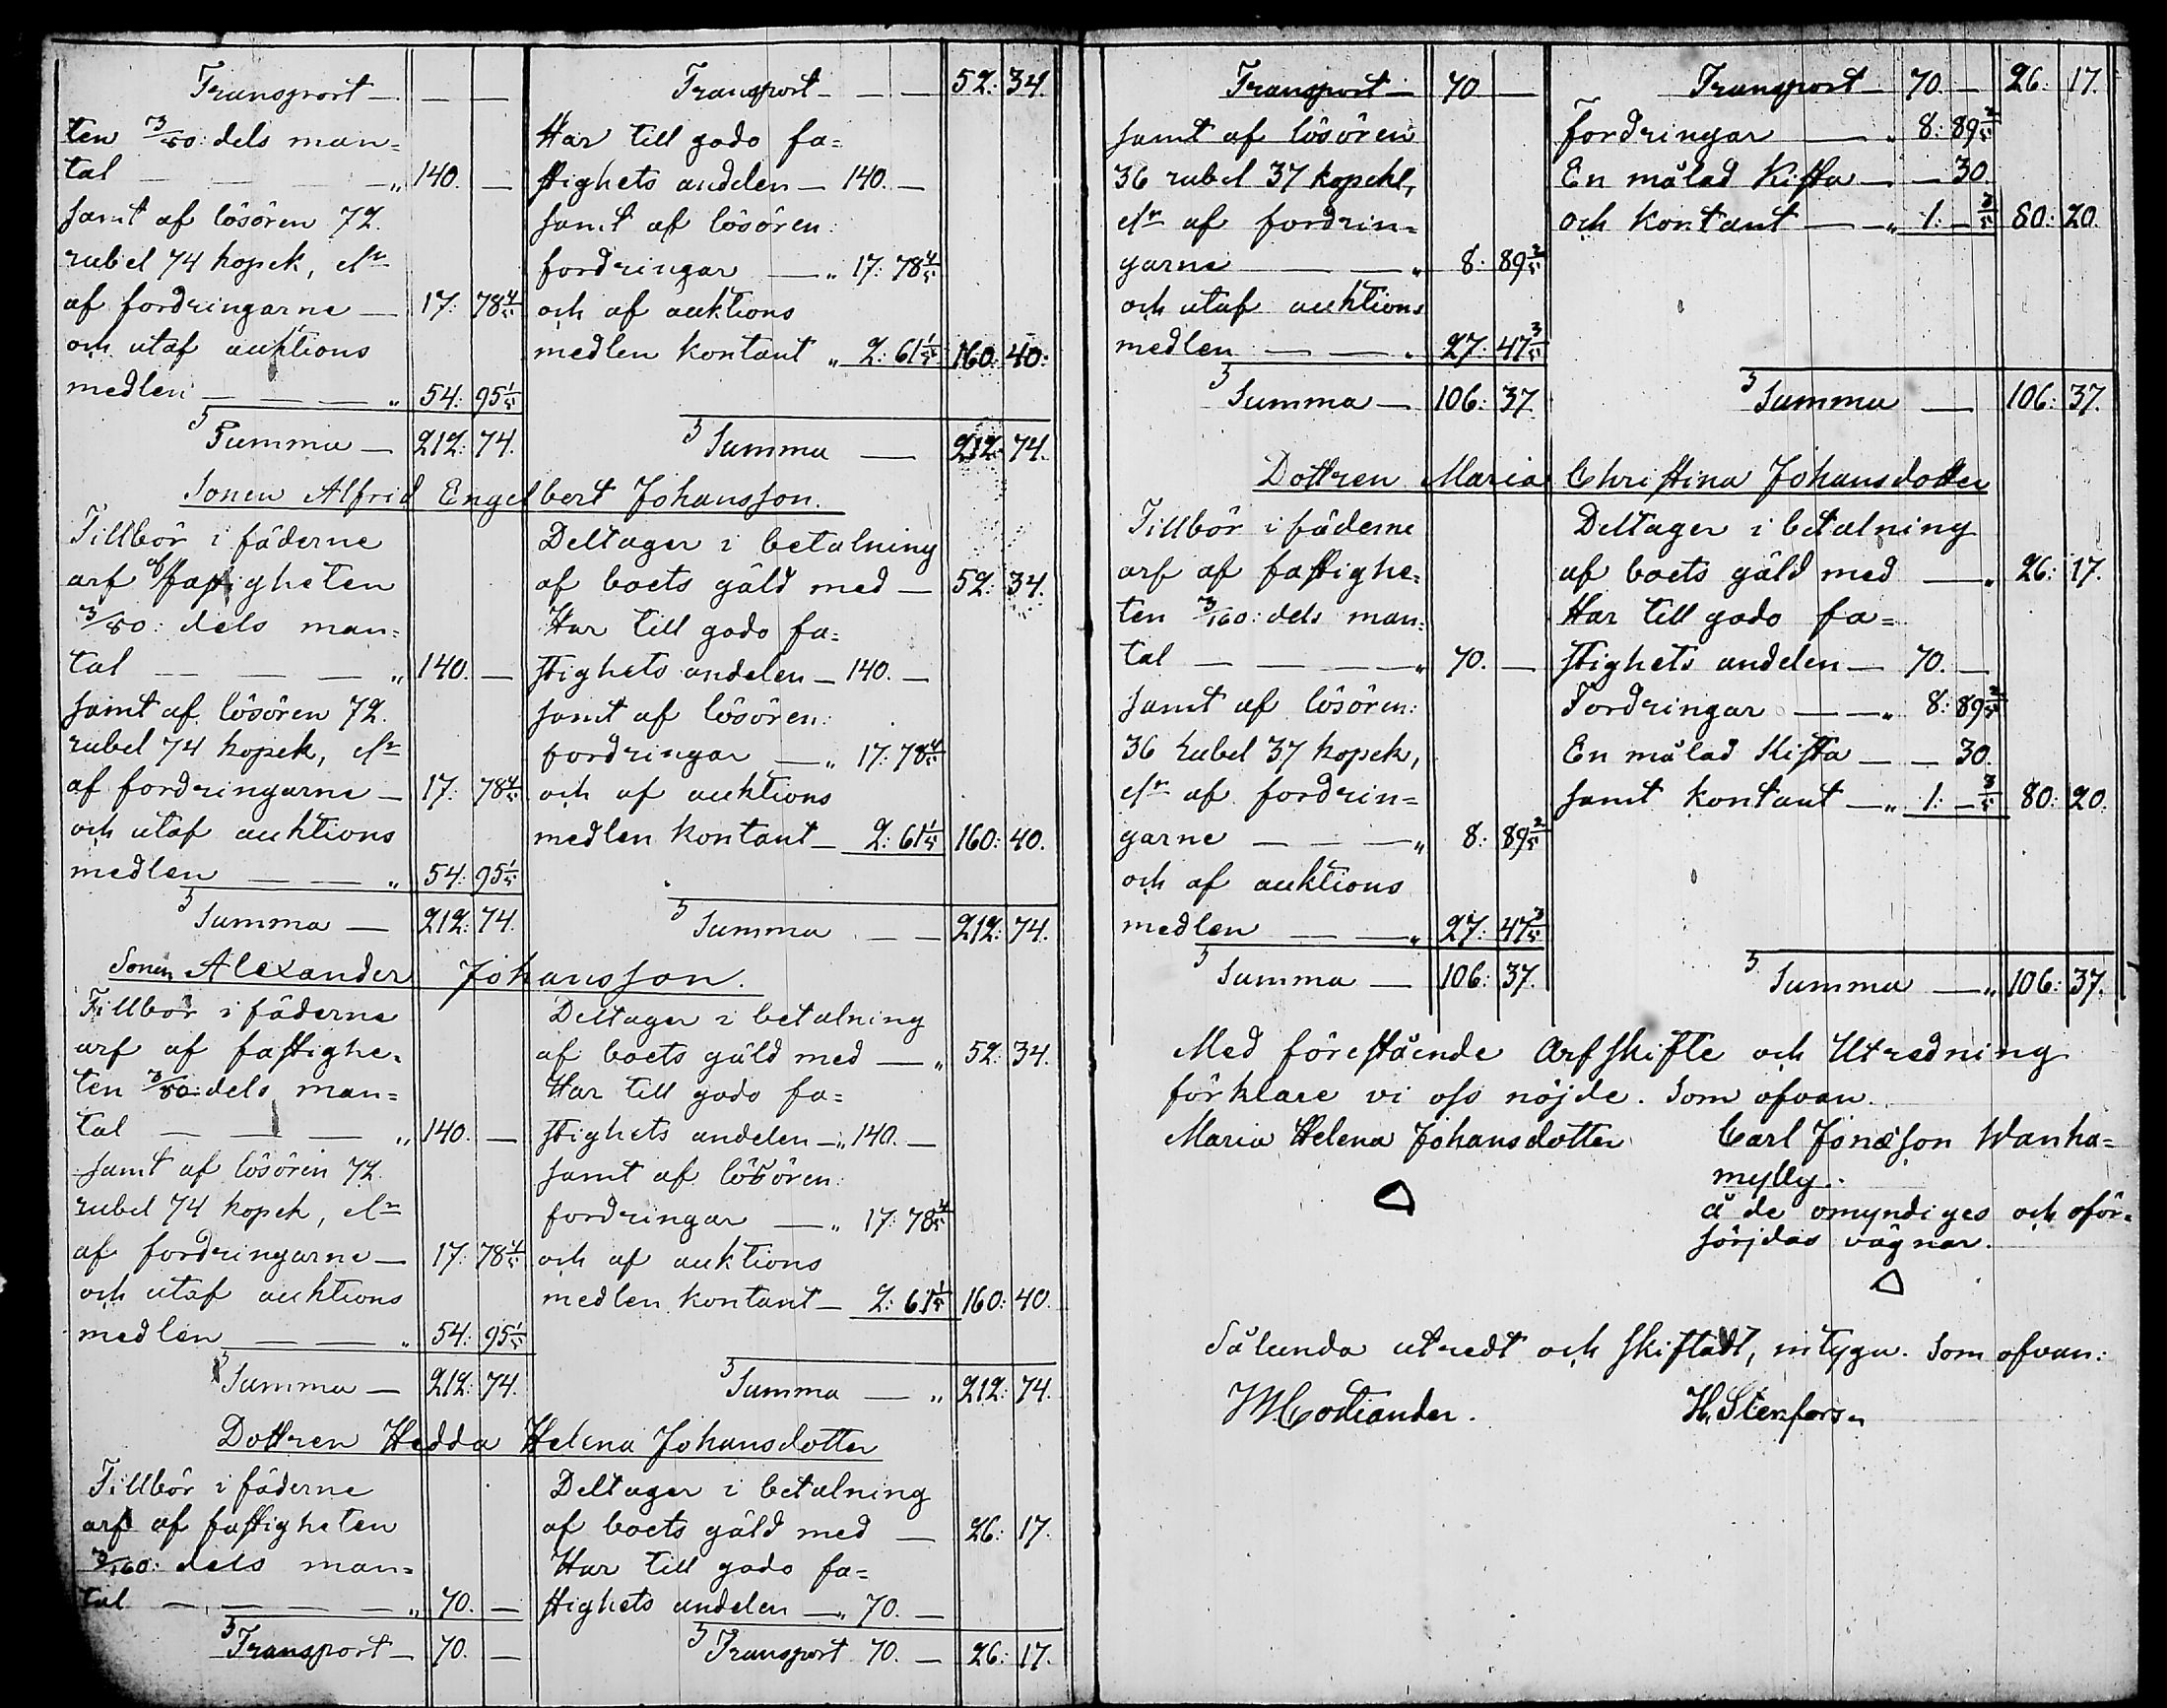 Transport — — —
ten 3/80: dels man=
tal — — — „ 140. —
samt af lösören 72.
rubel 74 kopek, elr
af fordringarne — 17: 78 4/5
och utaf auktions
medlen — — — „ 54: 95 1/5
Summa — 212: 74.
Transport — — — 52: 34.
Har till godo fa=
stighets andelen — 140. —
samt af lösören:
fordringar — „ 17: 78 4/5
och af auktions
medlen kontant „ 2: 61 1/5 160: 40:
Summa — 212: 74.
Sonen Alfrid Engelbert Johansson.
Tillbör i fäderne
arf af fastigheten
3/80: dels man=
tal — — — „ 140. —
samt af lösören 72.
rubel 74 kopek, elr
af fordringarne — 17: 78 4/5
och utaf auktions
medlen — — „ 54: 95 1/5
Summa — 212: 74.
Deltager i betalning
af boets gäld med — 52: 34.
Har till godo fa=
stighets andelen — 140. —
samt af lösören:
fordringar — „ 17: 78 4/5
och af auktions
medlen kontant — 2: 61 1/5 160: 40.
Summa — — 212: 74.
Sonen Alexander Johansson.
Tillbör i fäderne
arf af fastighe=
ten 3/80: dels man=
tal — — — „ 140. —
samt af lösören 72.
rubel 74 kopek, elr
af fordringarne — 17: 78 4/5
och utaf auktions
medlen — — „ 54: 95 1/5
Summa — 212: 74.
Deltager i betalning
af boets gäld med — „ 52: 34.
Har till godo fa=
stighets andelen — „ 140. —
samt af lösören:
fordringar — „ 17: 78 4/5
och af auktions
medlen kontant — 2: 61 1/5 160: 40.
Summa — „ 212: 74.
Dottren Hedda Helena Johansdotter
Tillbör i fäderne
arf af fastigheten
3/160: dels man=
tal — — — — „ 70. —
Transport — 70. —
Deltager i betalning
af boets gäld med — 26: 17.
Har till godo fa=
stighets andelen — „ 70. —
Transport 70. — 26: 17.
Transport — 70 —
samt af lösören
36 rubel 37 kopekl,
elr af fordrin=
garne — — „ 8: 89 2/5
och utaf auktions
medlen — — „ 27: 47 3/5
Summa — 106: 37.
Transport — 70. — 26: 17.
fordringar — „ 8: 89 2/5
En målad Kista — — 30.
och kontant — „ 1: — 3/5 80: 20.
Summa — 106: 37.
Dottren Maria Christina Johansdotter
Tillbör i fäderne
arf af fastighe=
ten 3/160: dels man=
tal — — — „ 70. —
samt af lösören:
36 rubel 37 kopek,
elr af fordrin=
garne — — „ 8: 89 2/5
och af auktions
medlen — — „ 27: 47 3/5
Summa — 106: 37.
Deltager i betalning
af boets gäld med — „ 26: 17.
Har till godo fa=
stighets andelen — 70. —
Fordringar — „ 8: 89 2/5
En målad Kista — — 30.
samt kontant — „ 1: — 3/5 80: 20.
Summa — „ 106: 37.
Med förestående Arfskifte och Utredning
förklare vi oss nöjde. Som ofvan.
Maria Helena Johansdotter Carl Jonasson Wanha=
mylly.
å de omyndiges och oför=
sörjdas vägnar.
Sålunda utredt och skiftadt, intyga. Som ofvan:
H. Stenfors.